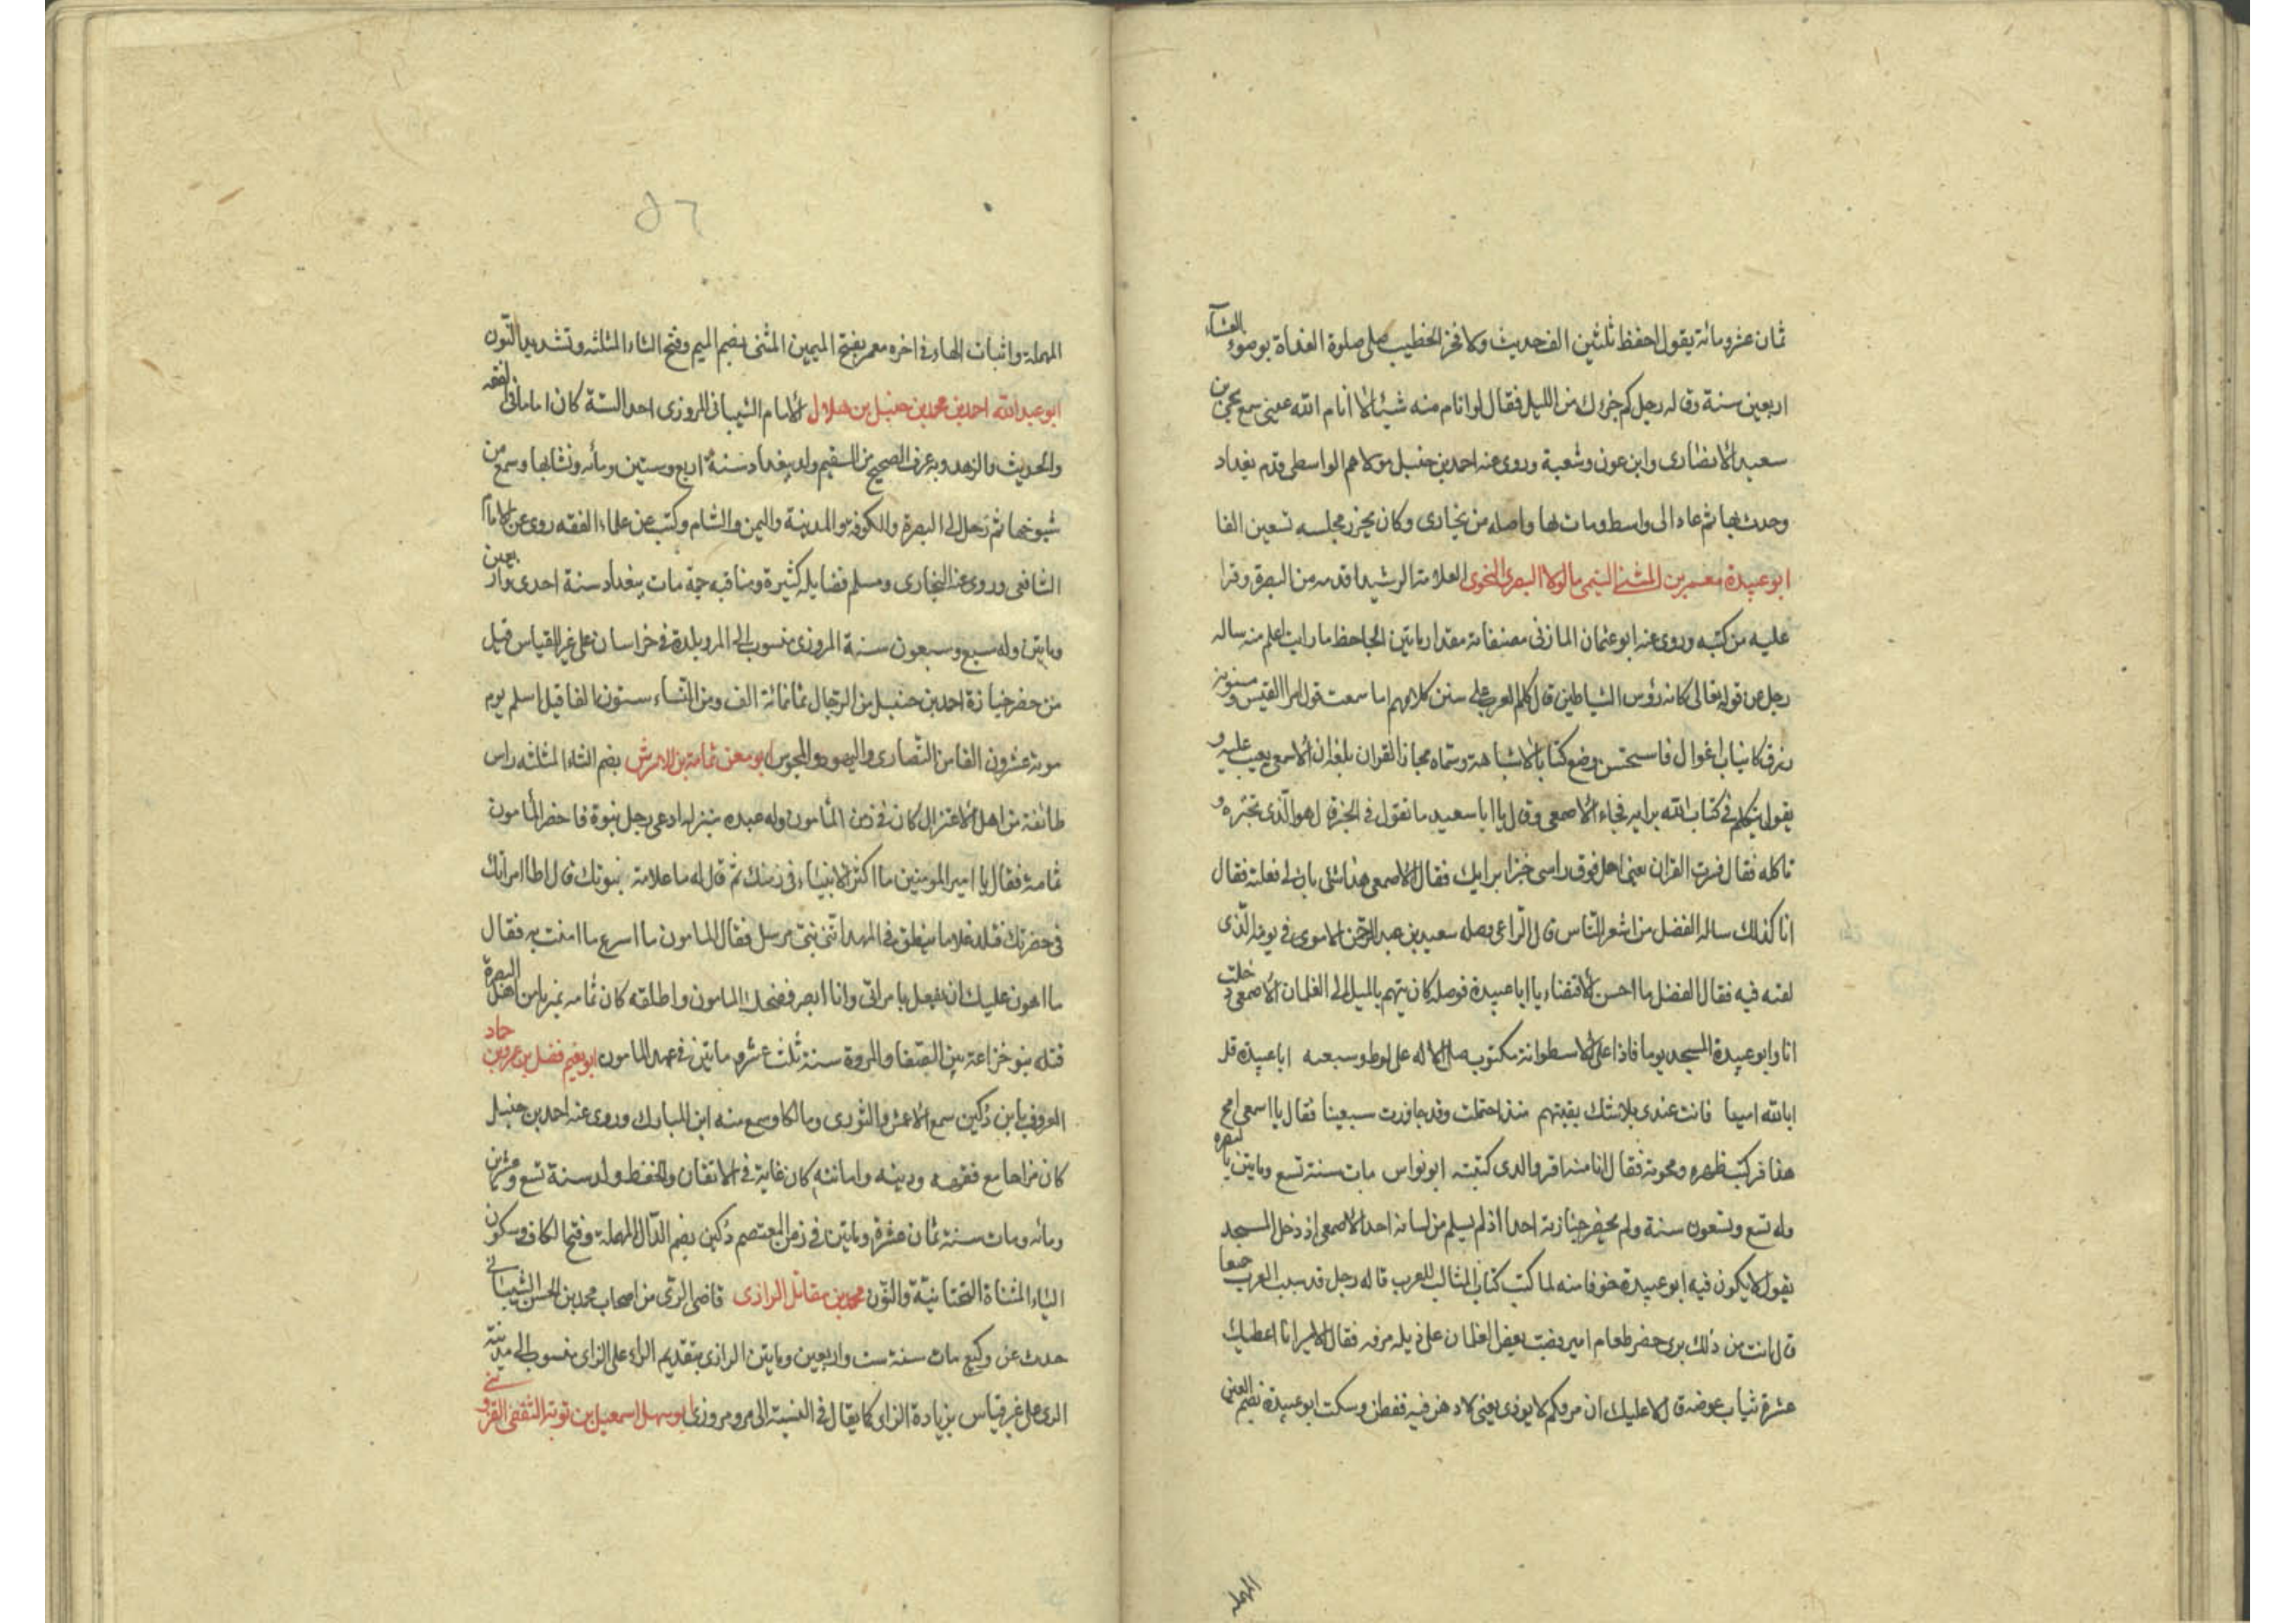 ثمان عشر ومائة يقول احفظ ثلثين الف حديث ولا فخر الخطيب صلى صلوة الغداة بوضوء العشآء
اربعين سنة وقال له رجل كم جزءك من الليل فقال لو انام منه شيئا لا انام الله عينى سمع يحيى بن
سعيد الانصارى وابن عون وشعبة وروى عنه احمد بن حنبل مولاهم الواسطى قدم بغداد
وحدث بها ثم عاد الى واسط ومات بها واصله من بخارى وكان يحزر مجلسه تسعين الفا
ابو عبيدة معمر بن المثنى التيمى بالولا البصرى النحوى العلامة الرشيد اقدمه من البصرة وقرا
عليه من كتبه وروى عنه ابو عثمان المازنى مصنفاته مقدار مايتين الجاحظ ما رايت اعلم منه ساله
رجل عن قوله تعالى كانه رؤس الشياطين قال كلم العرب على سنن كلامهم اما سمعت قول امرا القيس ومسنونة
زرق كانياب اغوال فاستحسن وضع كتابا لاشباهه وسماه مجاز القران بلغه ان الاصمعى يعيب عليه و
يقول يتكلم فى كتاب الله برايه فجاء الاصمعى وقال يا ابا سعيد ما تقول فى الخبز قال هو الذى تخبزه و
تاكله فقال فسرت القران يعنى احمل فوق راسى خبزا برايك فقال الاصمعى هذا شئ بان لى فعلته فقال
انا كذلك ساله الفضل من اشعر الناس قال الراعى وصله سعيد بن عبد الرحمن الاموى فى يومه الذى
لقنه فيه فقال الفضل ما احسن الاقتضاء يا ابا عبيدة فوصله كان يتهم بالميل الى الغلمان الاصمعى دخلت
انا وابو عبيدة المسجد يوما فاذا على الاسطوانة مكتوب صلى الاله على لوط وشيعه ابا عبيدة قل
ابالله امينا فانت عندى بلا شك بقيتهم منذ احتلمت وقد جاوزت سبعينا فقال يا اصمعى امح
هذا فركبت ظهره ومحوته فقال انا منه اقر والدى كتبته ابو نواس مات سنة تسع ومايتين بالبصره
وله تسع وتسعون سنة ولم يحضر جنازته احد اذ لم يسلم من لسانه احد الاصمعى اذ دخل المسجد
يقول لا يكون فيه ابو عبيدة خوفا منه لما كتب كتاب المثالب للعرب قال له رجل قد سبب العرب جميعا
قال انت من ذلك برى حضر طعام امير فصب بعض الغلمان على ذيله مرقه فقال الامير انا اعطيك
عشرة ثياب عوضه قال لا عليك ان مرقكم لا يوذى يعنى لا دهن فيه ففطن وسكت ابو عبيدة بضم العين
المهملة
٥٦
المهملة واثبات الهاء فى اخره معمر بفتح الميمين المثنى بضم الميم وفتح الثاء المثلثه وتشديد النون
ابو عبد الله احمد بن محمد بن حنبل بن هلال الامام الشيبانى المروزى احد الستة كان اماما فى الفقه
والحديث والزهد وبه عرف الصحيح من السقيم ولد ببغداد سنة اربع وستين ومائه ونشا بها وسمع من
شيوخها ثم رحل الى البصرة والكوفه والمدينة واليمن والشام وكتب عن علماء الفقه روى عن الامام
الشافعى وروى عنه البخارى ومسلم فضايله كثيرة ومناقبه جمة مات ببغداد سنة احدى واربعين
ومايتين وله سبع وسبعون سنة المروزى منسوب الى المرو بلدة فى خراسان على غير القياس قيل
من حضر جنازة احمد بن حنبل من الرجال ثمانمائة الف ومن النساء ستون الفا قيل اسلم يوم
موته عشرون الفا من النصارى واليهود والمجوس ابو معن ثمامة بن الاشرش بضم الثاء المثلثه راس
طائفة من اهل الاعتزال كان فى زمن المامون وله عبده منزله ادعى رجل نبوة فاحضر المامون
ثمامة فقال يا امير المومنين ما اكثر الانبياء فى زمنك ثم قال له ما علامة نبوتك قال اطا امراتك
فى حضرتك فتلد غلاما ينطق فى المهد اننى نبى مرسل فقال المامون ما اسرع ما امنت به فقال
ما اهون عليك ان يفعل بامراتى وانا ابصر فضحك المامون واطلقه كان ثمامه نميريا من اهل البصرة
قتله بنو خزاعة بين الصفا والمروة سنة ثلث عشر ومايتين فى عهد المامون ابو نعيم فضل بن عمرو بن حماد
المعروف بابن دكين سمع الاعمش والثورى ومالكا وسمع منه ابن المبارك وروى عنه احمد بن حنبل
كان مزاحا مع فقهه ودينه وامانته كان غاية فى الاتقان والحفظ ولد سنة تسع وعشرين
ومائه ومات سنة ثمان عشرة ومايتين فى زمن المعتصم دكين بضم الدال المهملة وفتح الكاف وسكون
الياء المثناة التحتانية والنون محمد بن مقاتل الرازى قاضى الرى من اصحاب محمد بن الحسن الشيبانى
حدث عن وكيع مات سنة ست واربعين ومايتين الرازى بتقديم الراء على الزاى منسوب الى مدينة
الرى على غير قياس بزيادة الزاى كما يقال فى النسبة الى مرو مروزى ابو سهل اسمعيل بن توبة الثقفى القزوينى